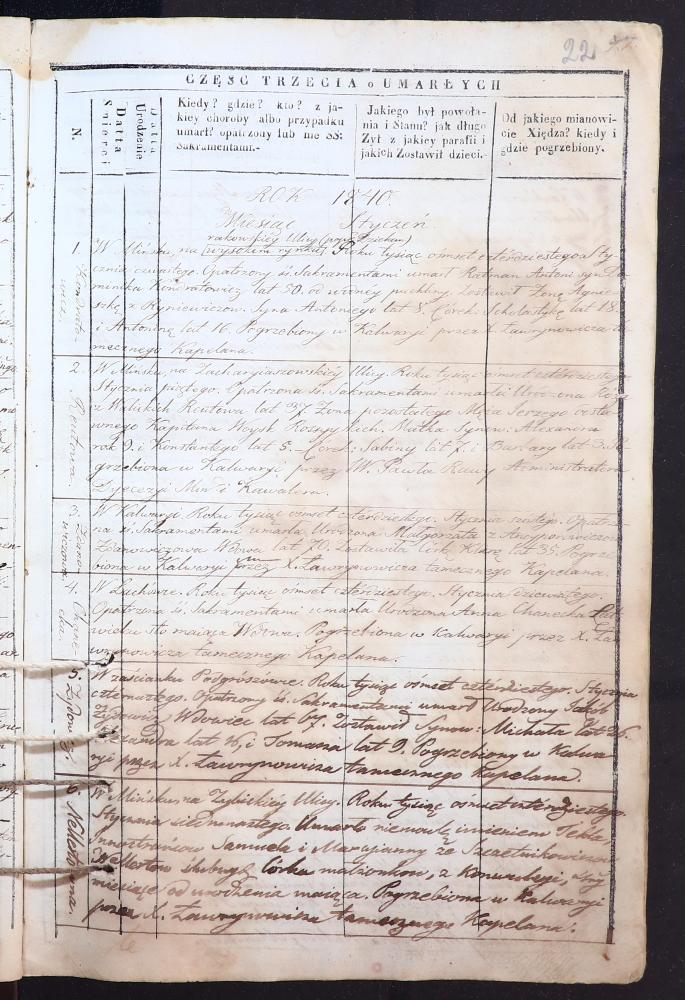 22
CZĘSC TRZECIA o UMARŁYCH
N.
Datta Smierci
Datta Urodzenie
Kiedy? gdzie? kto? z ja-
kiey choroby albo przypadku
umarł? opatrzony lub nie SS:
Sakramentami.-
Jakiego był powoła-
nia i Stanu? jak długo
Zył z jakiey parafii i
jakich Zostawił dzieci.-
Od jakiego mianowi-
cie Xiędza? kiedy i
gdzie pogrzebiony.
ROK 1840.
Miesiąc Styczeń
rakowskiey Ulicy
1. W Mińsku, na Roku tysiąc ośmset czterdziestego Sty-
cznia czwartego. Opatrzony śś. Sakramentami umarł Ratman Antoni syn Do-
minika Kondratowicz lat 50. od wodney puchliny, zostawił Żonę Agnie-
szkę z Ryniewiczow. Syna Antoniego lat 8. Córek: Scholastykę lat 18.
i Antoninę lat 16. Pogrzebiony w Kalwaryi przez X. Ławrynowicza ta-
mecznego Kapelana.
2. Reutowa.
W Mińsku, na Zacharyiaszowskiey Ulicy. Roku tysiąc ośmset czterdziestego
Stycznia piątego. Opatrzona śś. Sakramentami umarła Urodzona Róża
z Walickich Reutowa lat 37. Żona pozostałego Męża Jerzego
Kapitana Woysk Rossyyskich. Matka Synow: Alexandra
rok 9. i Konstantego lat 5. Córek: Sabiny lat 7. i Barbary lat 3. Po-
grzebiona w Kalwaryi przez W. Pawła Rawy Administratora
Dyecezyi Miń: i Kawalera.
3. W Kalwaryi Roku tysiąc ośmset czterdziestego. Stycznia szóstego. Opatrzo-
na śś. Sakramentami umarła Urodzona Małgorzata z
Zdanowiczowa Wdowa lat 70. Zostawiła Córkę Klarę lat 35. Pogrze-
biona w Kalwaryi przez X. Ławrynowicza tamecznego Kapelana.
4. W Roku tysiąc ośmset czterdziestego. Stycznia dziewiątego.
Opatrzona śś. Sakramentami umarła Urodzona Anna Chanecka Lat
wieku sto maiąca Wdowa. Pogrzebiona w Kalwaryi przez X. Ła-
wrynowicza tamecznego Kapelana.
5. Żydowicz
W zaścianku Podgruszowce. Roku tysiąc ośmset czterdziestego. Stycznia
czternastego. Opatrzony śś. Sakramentami umarł Urodzony Jakób
Żydowicz, Wdowiec lat 67. Zostawił Synow: Michała lat 26.
Alexandra lat 16, i Tomasza lat 9. Pogrzebiony w Kalwa-
ryi przez X. Ławrynowicza tamecznego Kapelana.
6
W Mińsku, na Zybickiey Ulicy. Roku tysiąc ośmset czterdziestego.
Stycznia siedmnastego. Umarło niemowlę imieniem Tekla,
Samuela i Maryjanny ze Szczetnikowiczow
ślubnych córka małżonkow, z Konwulsyi, trzy
miesiące od urodzenia maiąca. Pogrzebiona w Kalwaryi
przez X. Ławrynowicza tamecznego Kapelana.